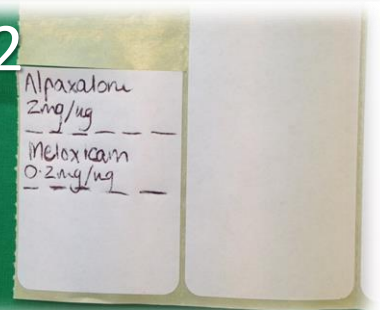 2
Alpaxalone
2mg/kg
Meloxicam
0.2mg/kg